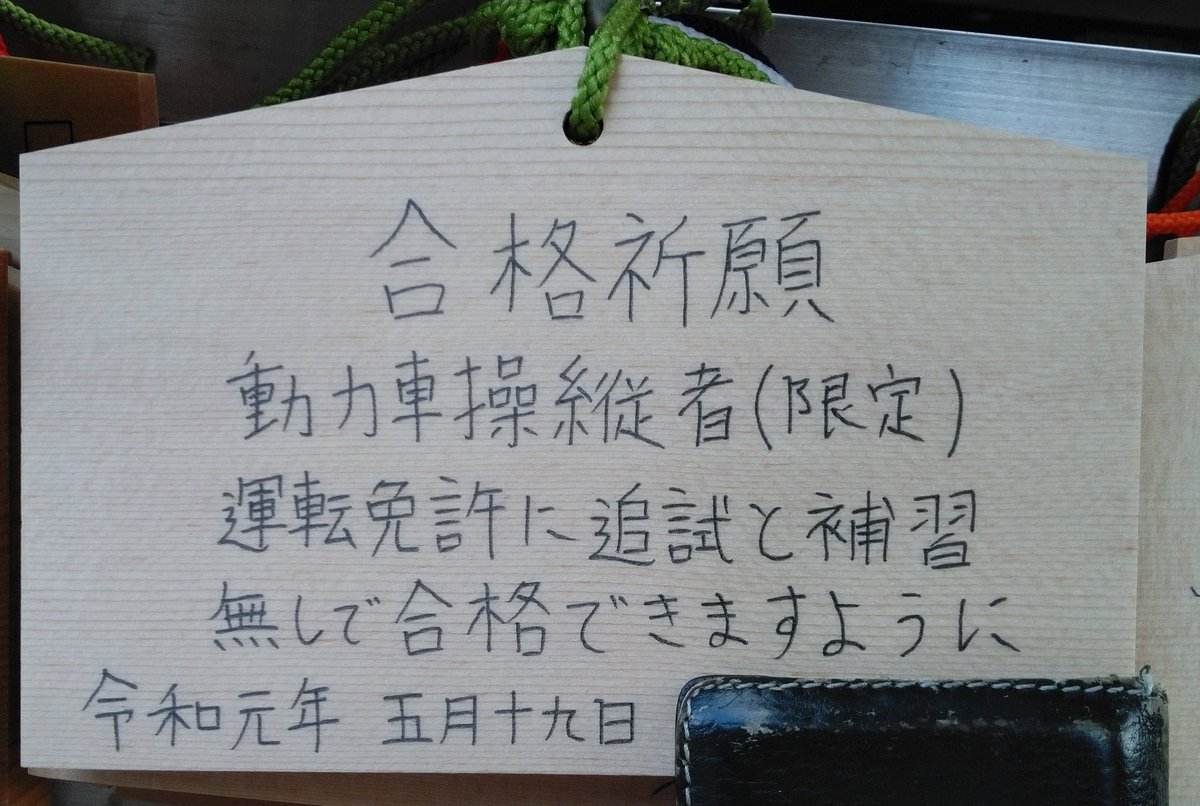 合格祈願
動力車操縦者(限定)
運転免許に追試と補習
無しで合格できますように
令和元年 五月十九日